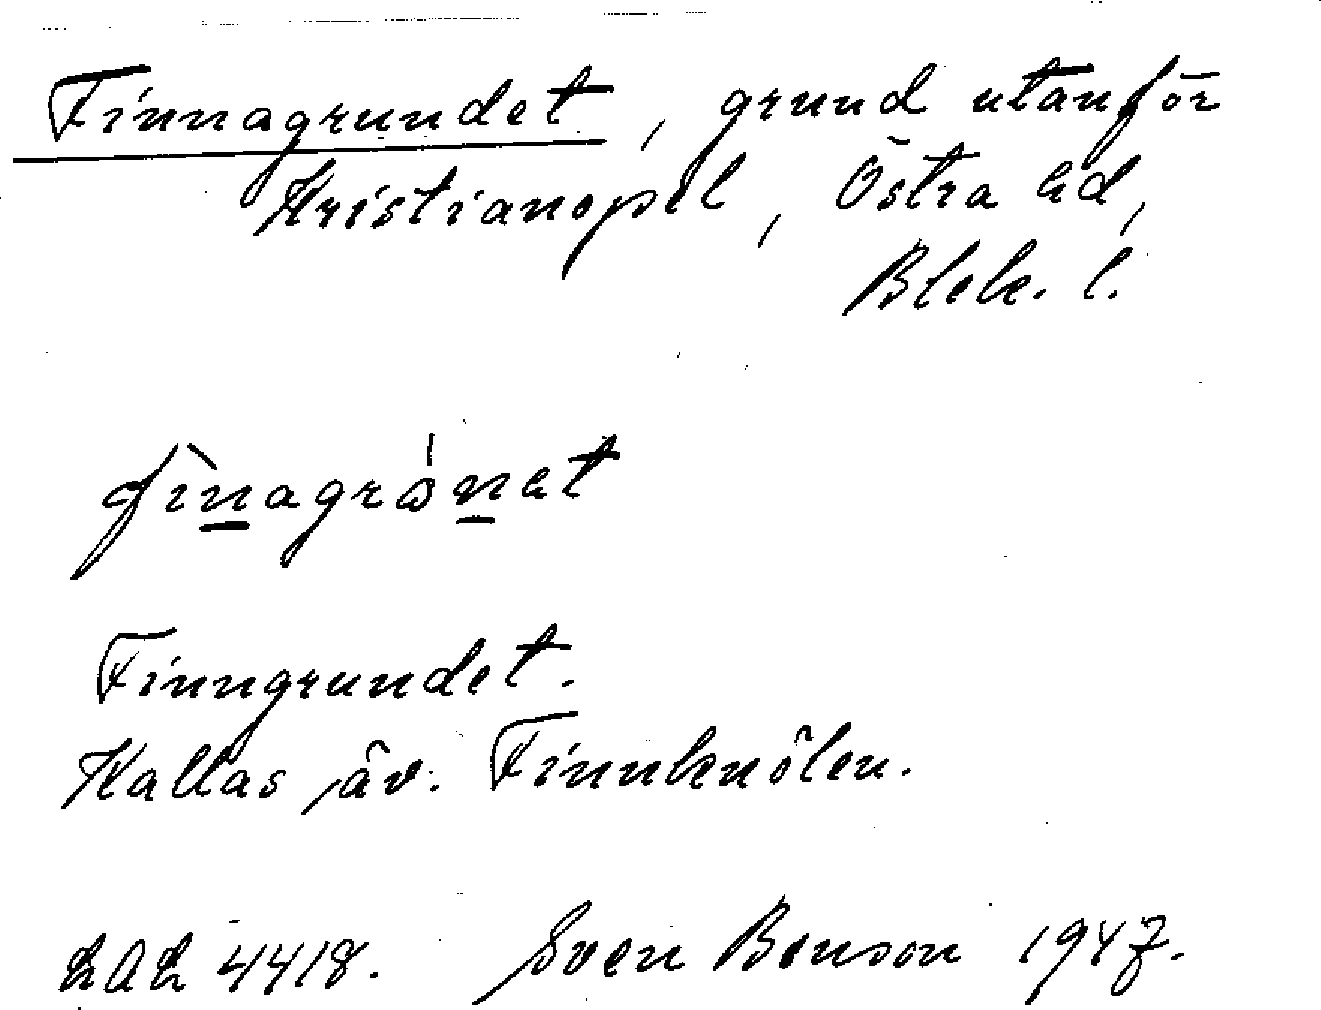 Finnagrundet, grund utanför
Kristianopel, Östra hd,
Blek. l.
fìnagrónat
Finngrundet.
Kallas äv. Finnknölen.
LAL 4418. Sven Benson 1947.